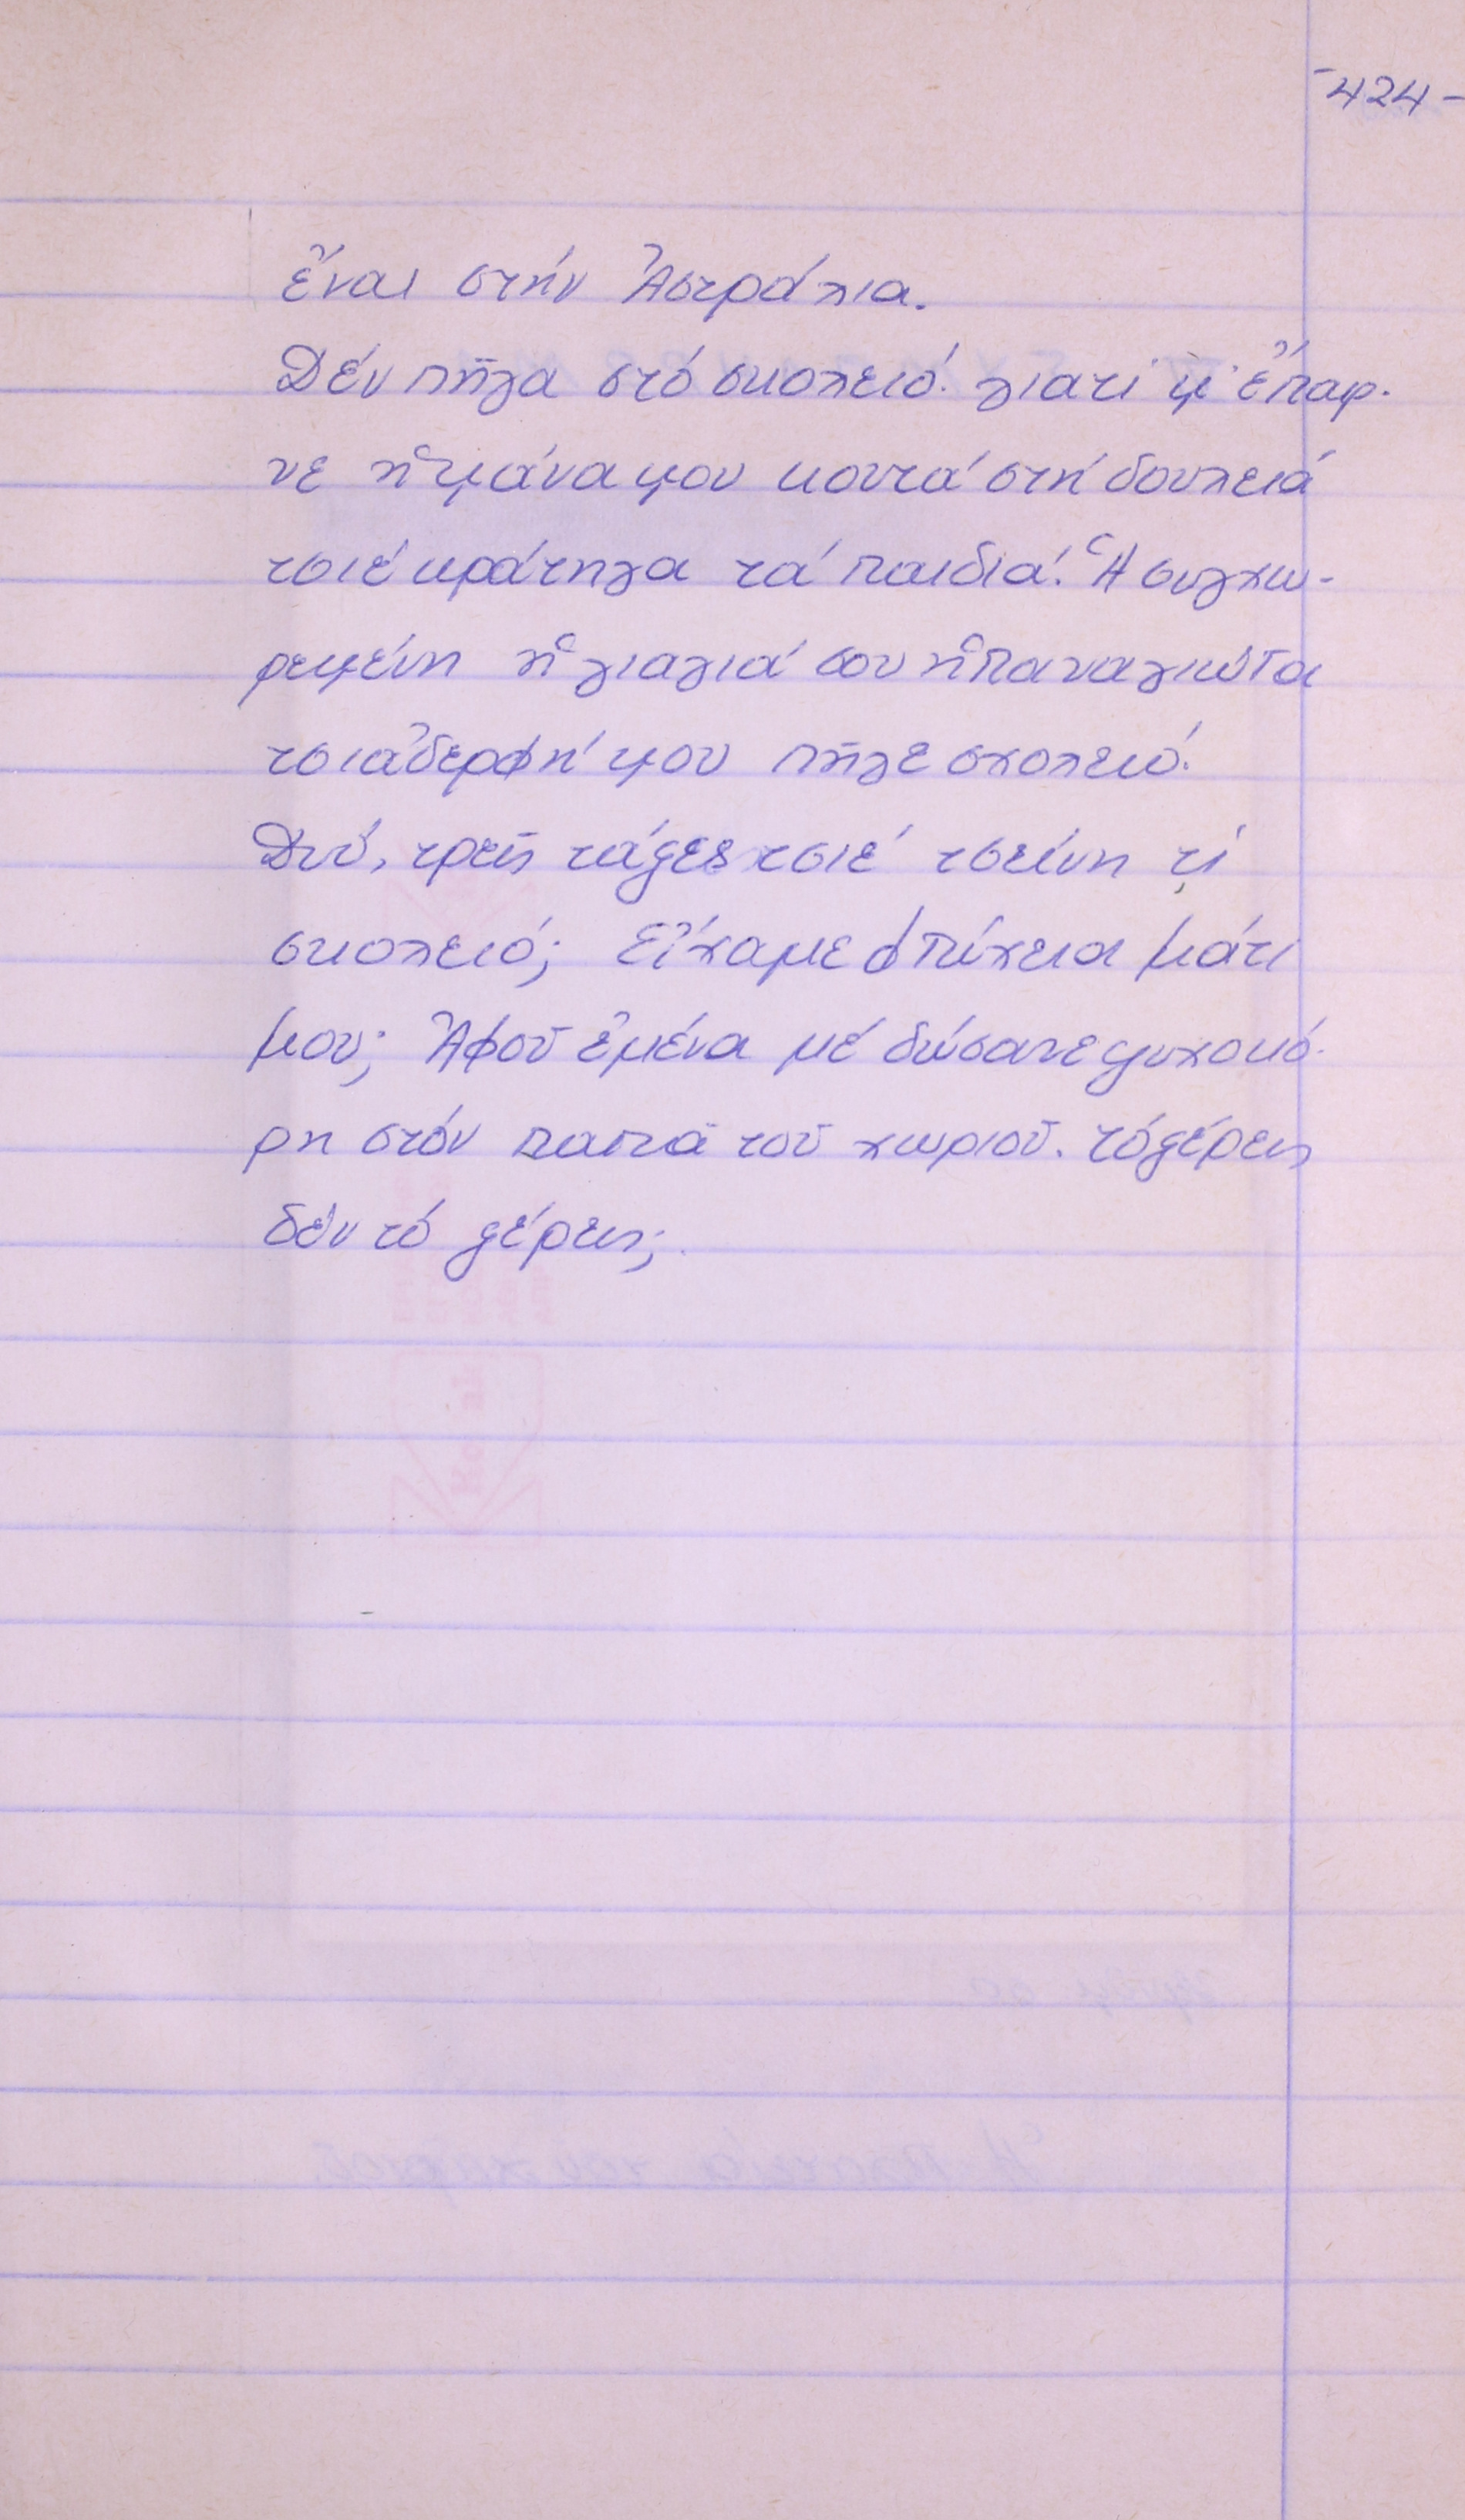 -424-
ἔναι στήν Ἀστράλια.
Δέν πῆγα στό σκολειό. γιατί μ' ἔπαιρ-
νε ἡ μάνα μου κοντά στή δουλειά
τσιέ κράτηγα τά παιδιά. Ἡ συγχω-
ρεμένη ἡ γιαγιά σου ἡ Παναγιώτα
τσιἀδερφή μου πῆγε σχολειό.
Δυό, τρεῖς τάξες τσιέ τσείνη τί
σκολειό; Εἴχαμε φτώχεια μάτι
μου; Ἀφοῦ ἐμένα μέ δώσανε ψυχοκό-
ρη στόν παπᾶ τοῦ χωριοῦ. τό ξέρεις
δέν τό ξέρεις;